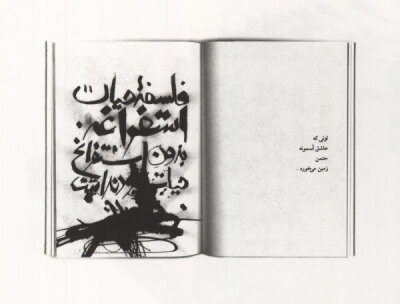 فلسفهٔ حیات
استفراغه.
بدون استفراغ
حیات
اونی که
عاشق آسمونه
حتمن
زمین می‌خوره.